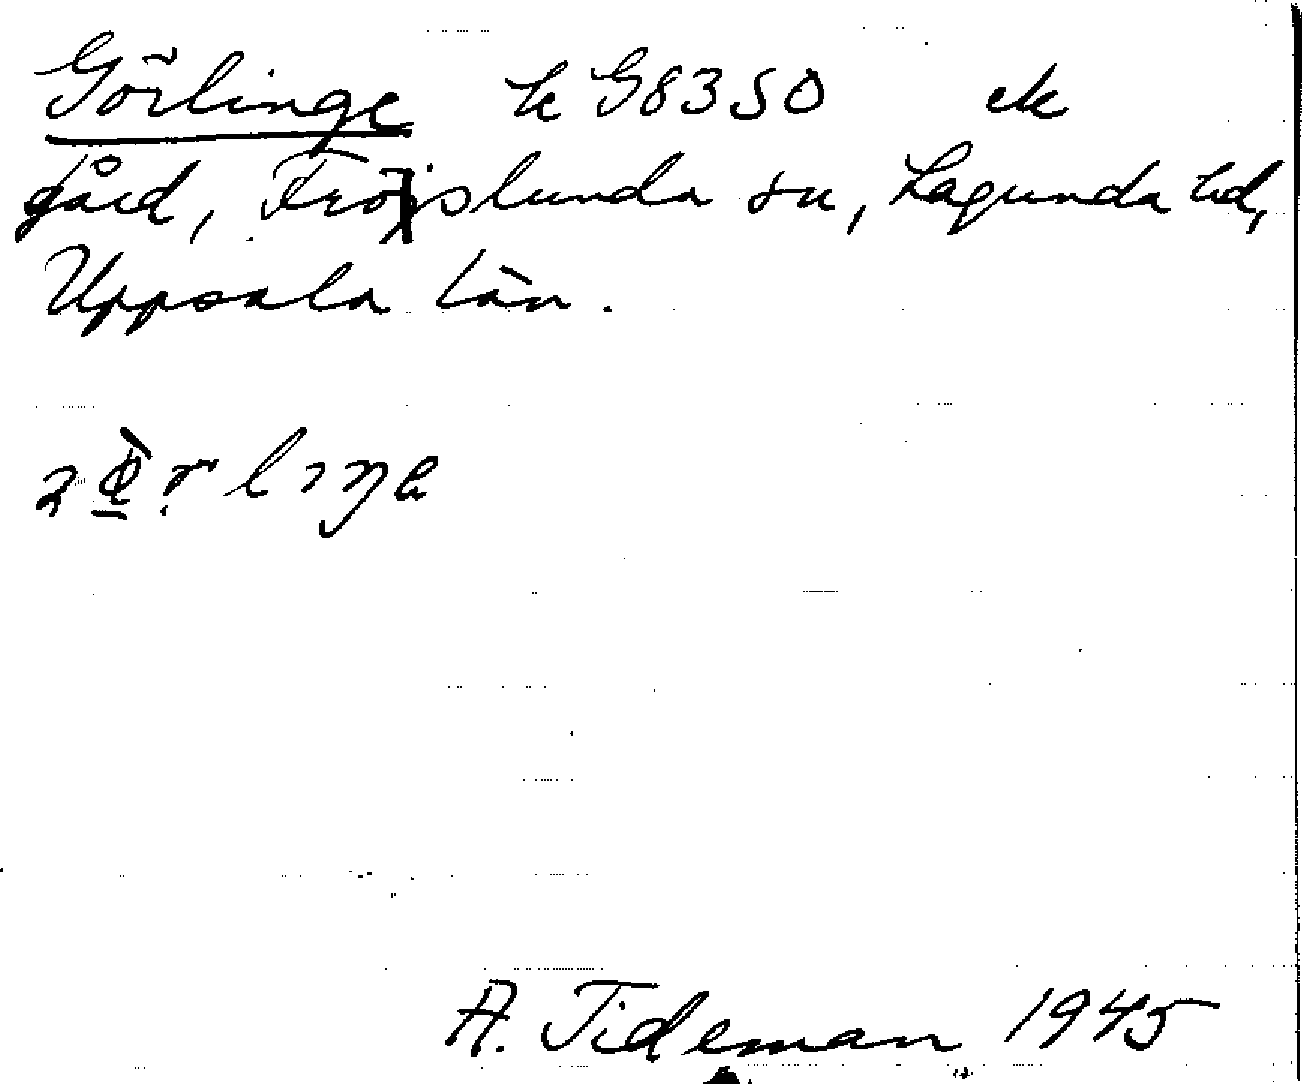 Görlinge k G8350 ek
gård, Fröslunda sn, Lagunda hd,
Uppsala län.
A. Tideman 1945